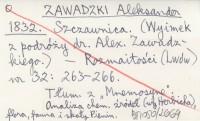 ZAWADZKI Aleksander
1832. Szczawnica. (Wyimek
z podróży dr. Alex. Zawadz-
kiego.) — Rozmaitości (Lwów)
nr 32: 263-266.
Tłum. z „Mnemosyne".
analiza chem. źródeł (wg
flora, fauna i skały Pienin.